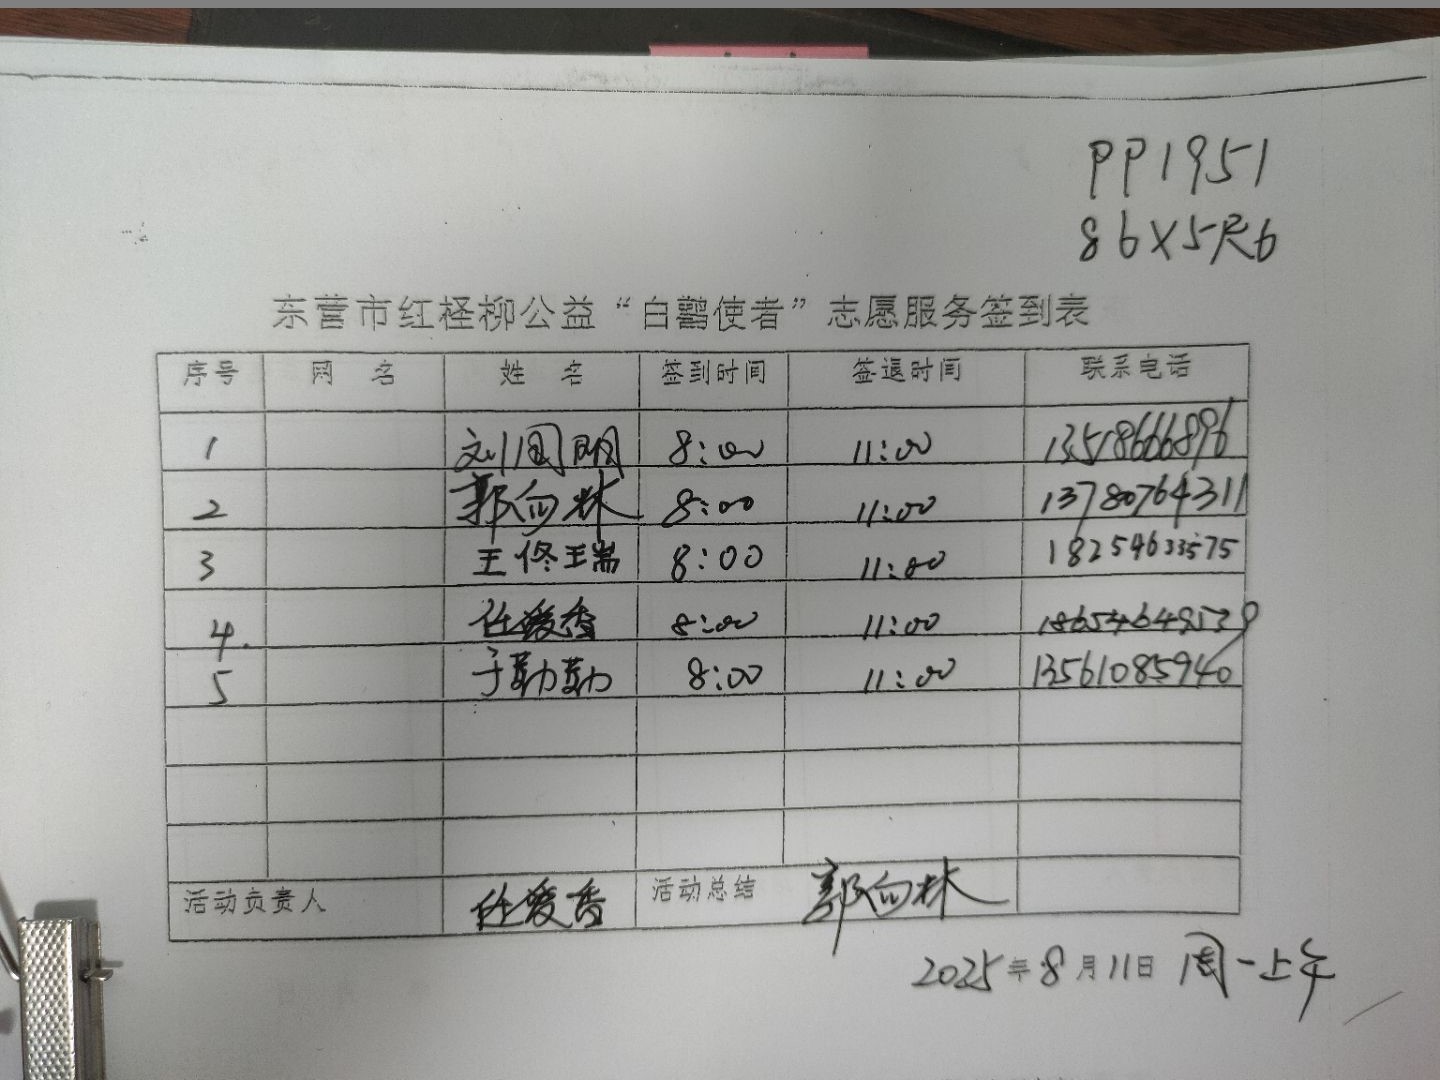 PP1951
86X5尺6
东营市红柽柳公益“白鹳使者”志愿服务签到表
序号 网 名 姓 名 签到时间 签退时间 联系电话
1 刘国明 8:00 11:00 13518666896
2 郭向林 8:00 11:00 13780764311
3 王佟瑞 8:00 11:00 18254633575
4. 任爱香 8:00 11:00 18654649539
5 于勤勤 8:00 11:00 13561085940
活动负责人 任爱香 活动总结 郭向林
2025年8月11日 周一上午